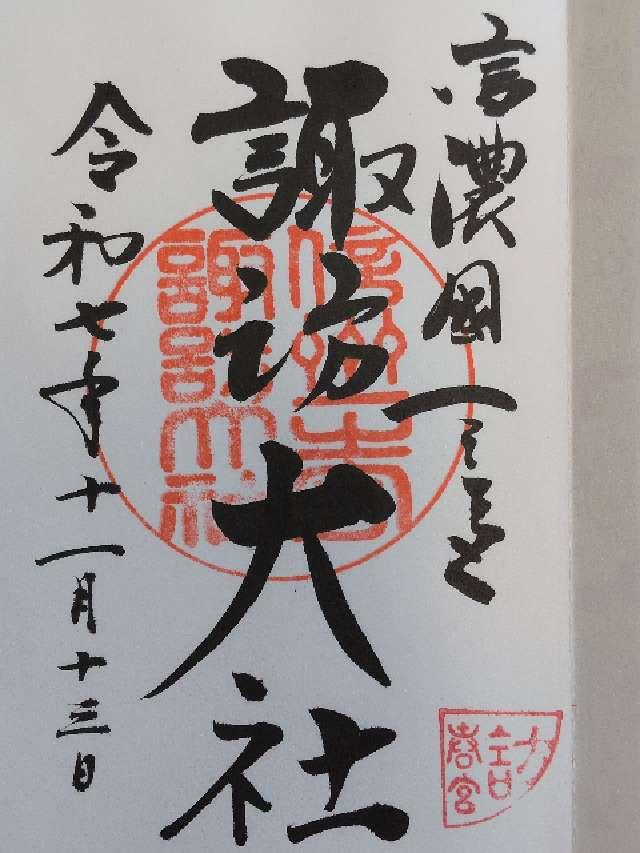 信濃國一之宮
諏訪大社
令和七年十一月十三日
信州一宮
諏訪大社
春宮